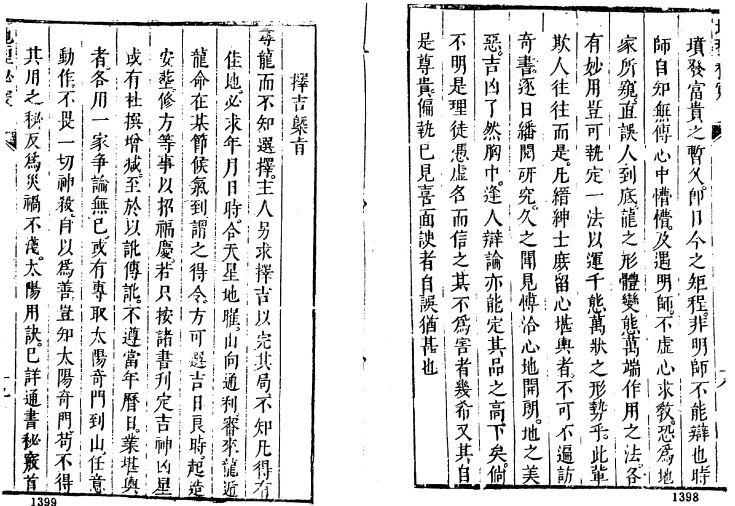 墳發富貴之暫久。即日今之矩程。非明師不能辯也時
師自知無傳心中懵懵。及遇明師。不虛心求教。恐為地
家所窺。直誤人到底。龍之形體變態萬端作用之法。各
有妙用豈可執定一法以運千態萬狀之形勢乎。此輩
欺人往往而是。凡縉紳士庶留心堪輿者。不可不遍訪
奇書。逐日繙閱研究。久之聞見博洽心地開朗。地之美
惡。吉凶了然胸中。逢人辯論亦能定其品之高下矣。倘
不明是理徒慿虛名而信之其不為害者幾希又其自
是尊貴。偏執己見喜面諛者自誤猶甚也
1398
擇吉槩言
尋龍而不知選擇。主人另求擇吉以完其局。不知凡得有
佳地。必求年月日時。合天星地曜。山向通利。審來龍近
龍命在某節候氣到謂之得令。方可選吉日良時起造
安塟。修方等事以招福慶。若只按諸書刋定吉神凶星
或有杜撰增減。至於以訛傳訛。不遵當年曆日。業堪輿
者。各用一家爭論無已。或有專取太陽奇門到山。任意
動作。不畏一切神殺。自以為善。豈知太陽奇門。茍不得
其用之秘。反為災禍不淺。太陽用訣。已詳通書秘竅首
1399